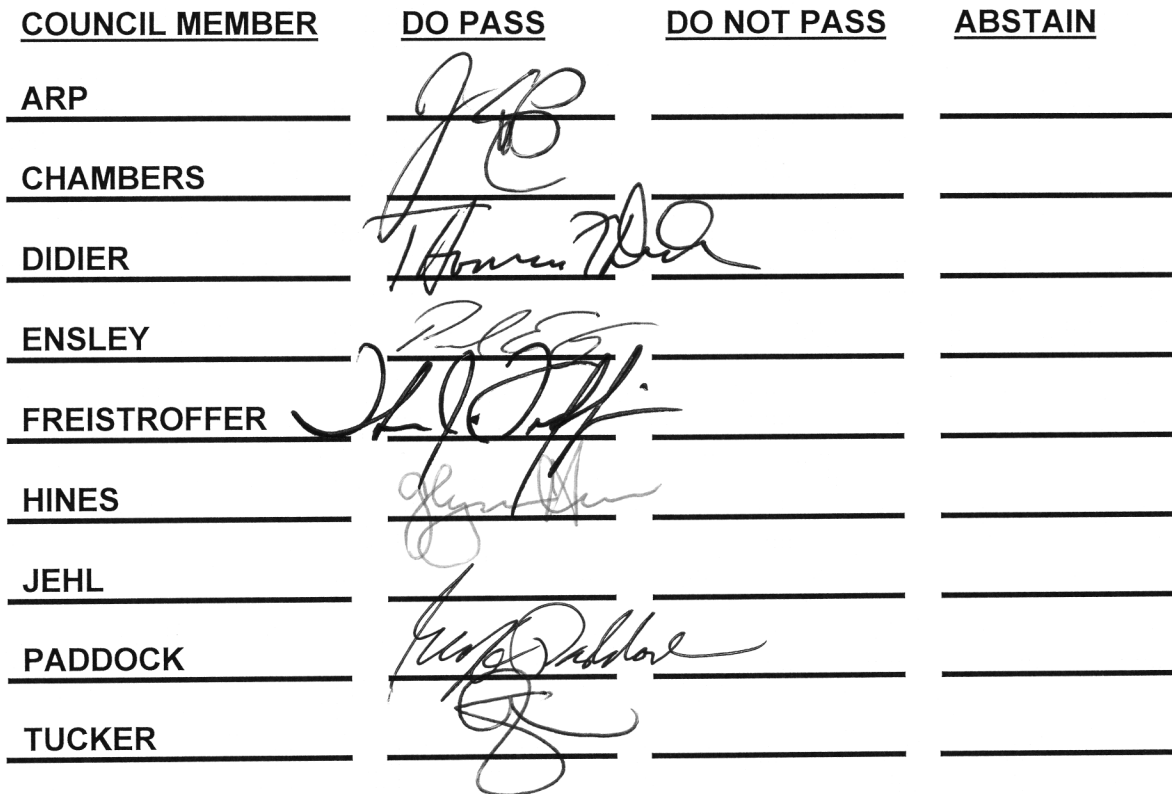 COUNCIL MEMBER DO PASS DO NOT PASS ABSTAIN
ARP
CHAMBERS
DIDIER Thomas
ENSLEY
FREISTROFFER
HINES Glynn Hines
JEHL
PADDOCK Paddock
TUCKER